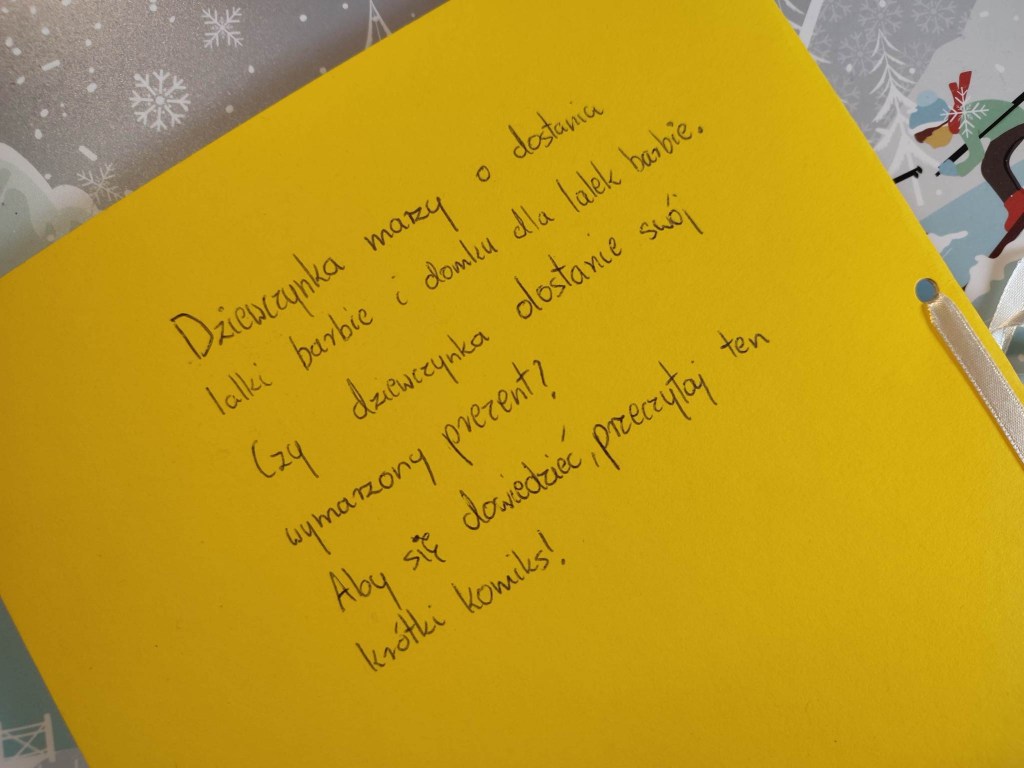 Dziewczynka marzy o dostania
lalki barbie i domku dla lalek barbie.
Czy dziewczynka dostanie swój
wymarzony prezent?
Aby się dowiedzieć, przeczytaj ten
krótki komiks!